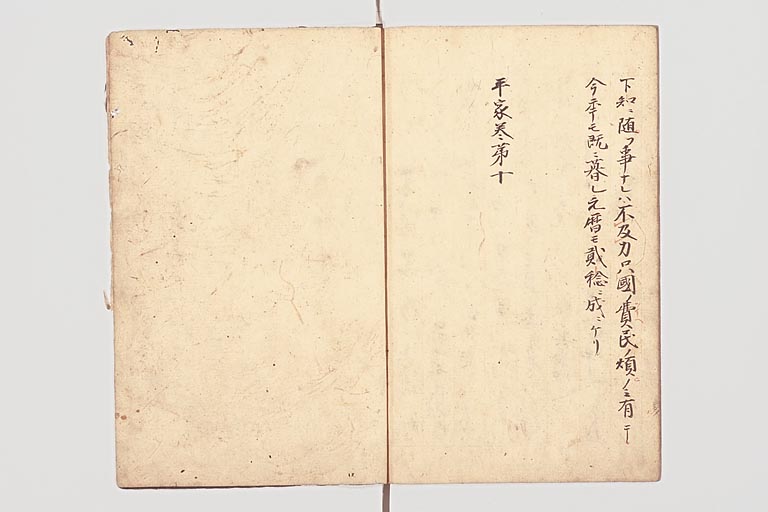 下知ニ随フ事ナレハ不及力只國ノ費民ノ煩ノミ有テ
今年モ既ニ暮レ元暦モ貳稔ニ成ニケリ
平家巻第十